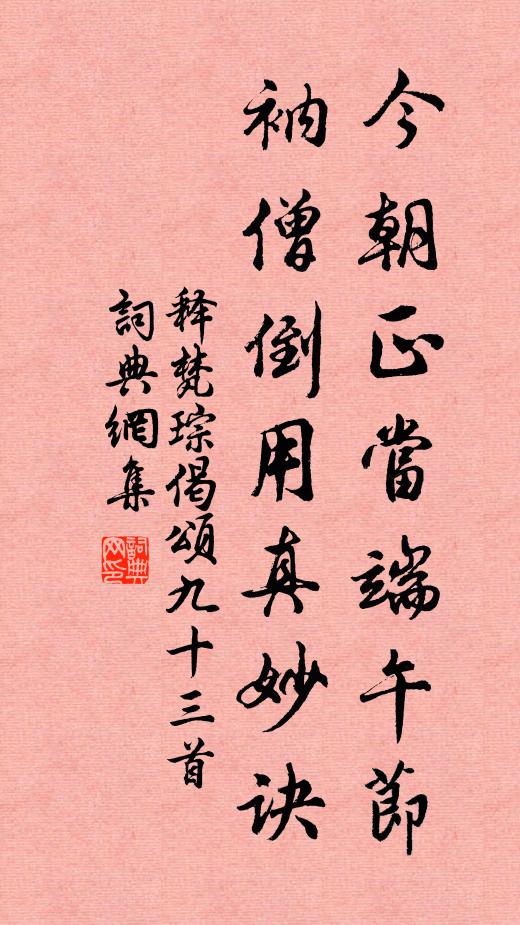 今朝正當端午節
衲僧倒用真妙诀
释梵琮偈頌九十三首
詞典網集
詞典網印